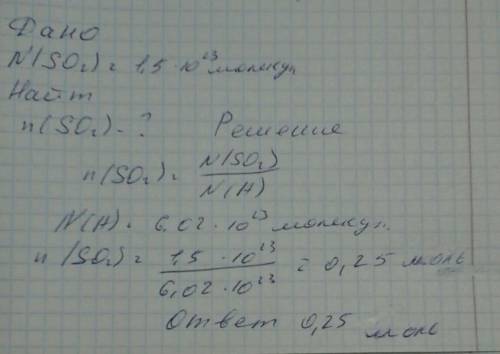 Дано
N(SO₂) = 1,5 · 10²³ молекул
Найт
n(SO₂) - ? Решение
n(SO₂) = N(SO₂) / N(A)
N(A) = 6.02 · 10²³ молекул.
n (SO₂) = 1,5 · 10²³ / 6,02 · 10²³ = 0,25 моль
Ответ 0,25 моль